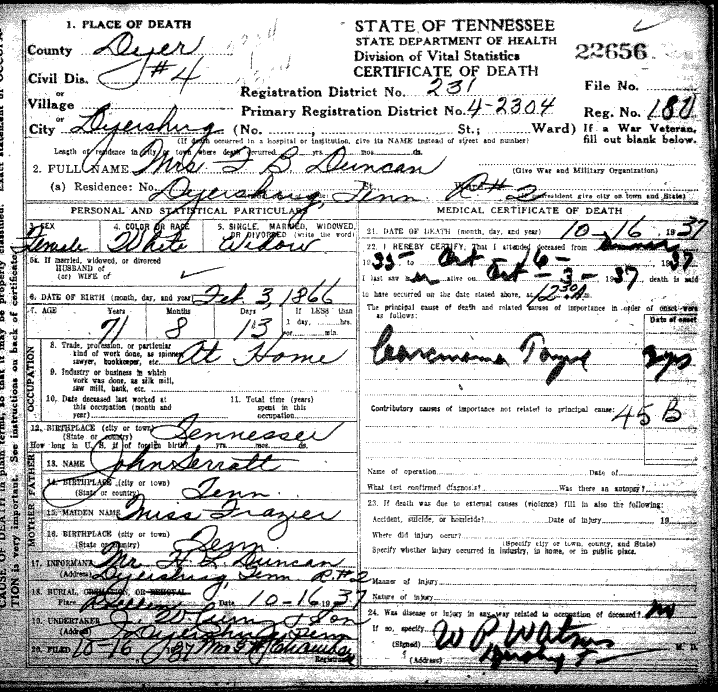 1. PLACE OF DEATH
County Dyer
Civil Dis. #4
or
Village
or
City Dyersburg (No. St.; Ward)
(If death occurred in a hospital or institution, give its NAME instead of street and number)
STATE OF TENNESSEE
STATE DEPARTMENT OF HEALTH
Division of Vital Statistics
CERTIFICATE OF DEATH
22656
Registration District No. 231
File No.
Primary Registration District No. 4-2304
Reg. No. 180
If a War Veteran,
fill out blank below.
Length of residence in city or town where death occurred yrs. mos. ds.
2. FULL NAME Mrs B Duncan
(Give War and Military Organization)
(a) Residence: No. Dyersburg, Tenn St. R#2
PERSONAL AND STATISTICAL PARTICULARS
3. SEX
Female
4. COLOR OR RACE
White
5. SINGLE, MARRIED, WIDOWED,
OR DIVORCED (write the word)
Widow
5a. If married, widowed, or divorced
HUSBAND of
(or) WIFE of
6. DATE OF BIRTH (month, day, and year) Feb. 3, 1866
7. AGE Years Months Days If LESS than
1 day, hrs.
or min.
71 8 13
8. Trade, profession, or particular
kind of work done, as spinner,
sawyer, bookkeeper, etc. At Home
9. Industry or business in which
work was done, as silk mill,
saw mill, bank, etc.
10. Date deceased last worked at
this occupation (month and
year)
11. Total time (years)
spent in this
occupation
OCCUPATION
12. BIRTHPLACE (city or town)
(State or country) Tennessee
How long in U. S. if of foreign birth? yrs. mos. ds.
FATHER
13. NAME John Serratt
14. BIRTHPLACE (city or town)
(State or country) Tenn
MOTHER
15. MAIDEN NAME Miss Frazier
16. BIRTHPLACE (city or town)
(State or country) Tenn
17. INFORMANT Mr. Duncan
(Address) Dyersburg, Tenn R#2
18. BURIAL, CREMATION, OR REMOVAL
Place Date 10-16 1937
19. UNDERTAKER & Son
(Address) Dyersburg Tenn
20. FILED 10-16 1937 Mrs
Registrar
MEDICAL CERTIFICATE OF DEATH
21. DATE OF DEATH (month, day, and year) 10-16 1937
22. I HEREBY CERTIFY, That I attended deceased from
1935 to Oct 16 1937
I last saw her alive on Oct - 3 - 1937 death is said
to have occurred on the date stated above, at 12 30 A m.
The principal cause of death and related causes of importance in order of onset were
as follows:
Date of onset
Carcinoma Tongue 2 yrs
Contributory causes of importance not related to principal cause:
45 B
Name of operation Date of
What test confirmed diagnosis? Was there an autopsy?
23. If death was due to external causes (violence) fill in also the following:
Accident, suicide, or homicide? Date of injury 19
Where did injury occur?
(Specify city or town, county, and State)
Specify whether injury occurred in industry, in home, or in public place.
Manner of injury
Nature of injury
24. Was disease or injury in any way related to occupation of deceased? no
If so, specify
(Signed) W P Watson M. D.
(Address) Dyersburg T